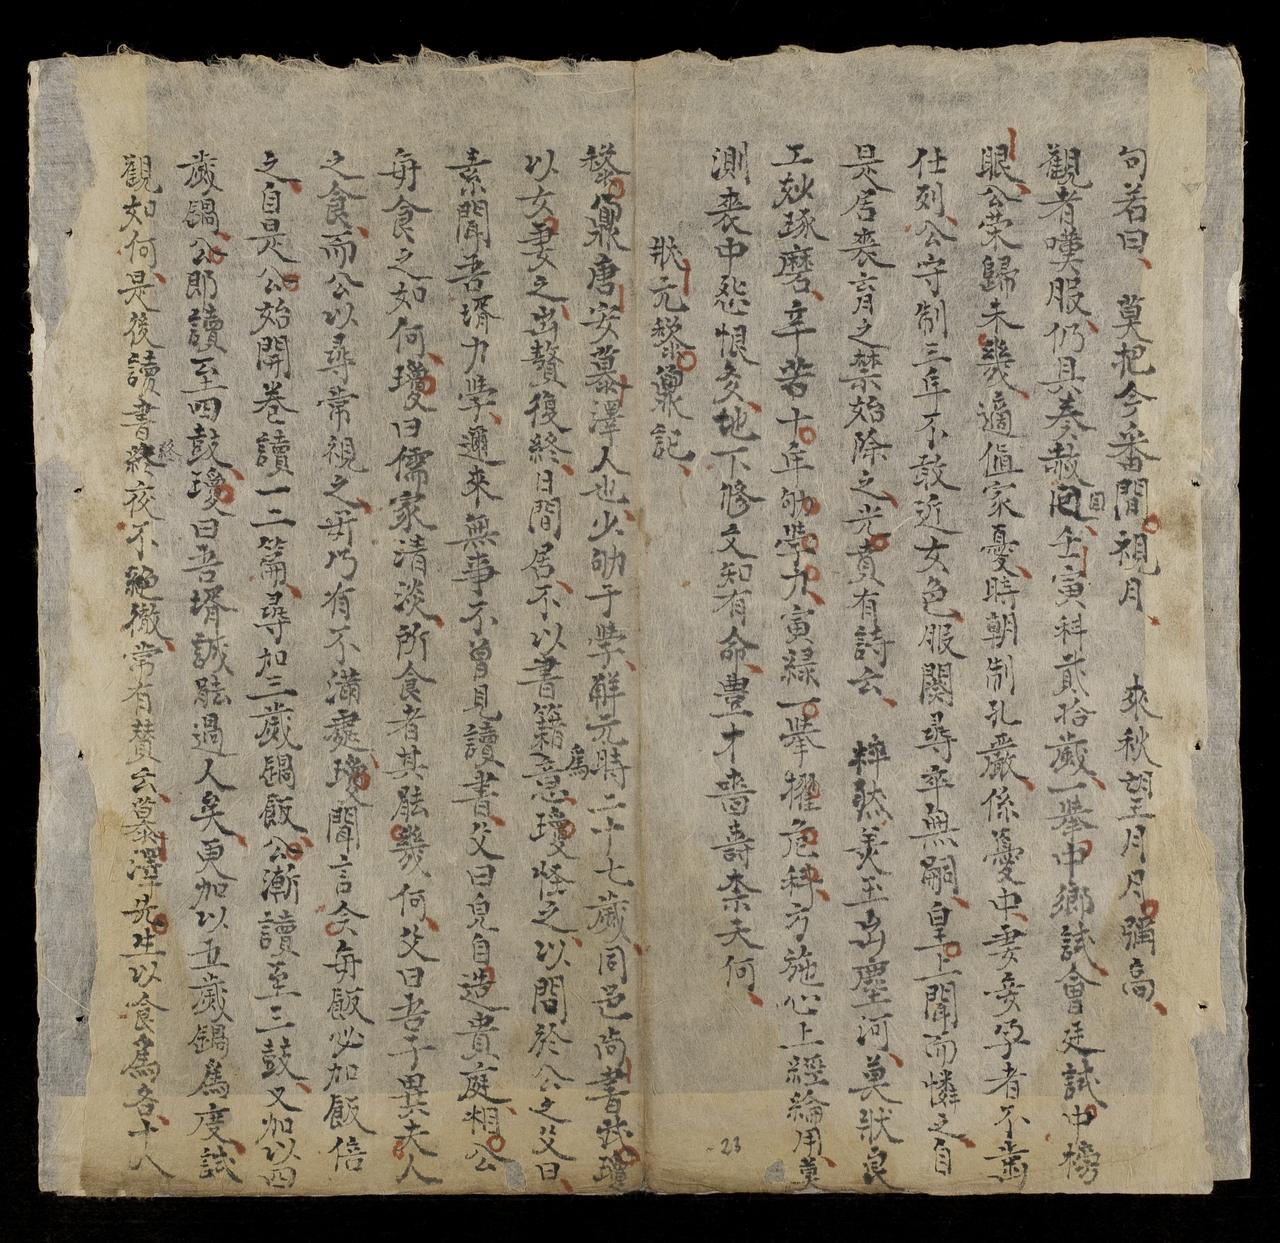 句若曰莫把今番閒視月來秋望月月彌高
觀者嘆服仍具奏赦囘壬寅科貳拾歲一舉中鄉試會廷試中榜
眼公荣歸未幾適値家憂時朝制孔嚴係憂中妻妾孕者不齒
仕列公守制三年不敢近女色服闋尋卒無嗣皇上聞而憐之自
是居喪育之禁始除之光賁有詩云粹然美玉出塵河莫狀良
工㓨琢磨辛苦十年劬學力寅緣一舉擢危科方施心上經綸用莫
測喪中怨恨多地下修文知有命豊才嗇壽柰天何
狀元黎鼐記
黎鼐唐安慕澤人也少劬于學觧元時二十七歲同邑尚書武瓊
以女妻之出贅復終日閒居不以書籍爲意瓊怪之以問於公之父曰
素聞吾壻力學邇來無事不曾見讀書父曰兒自造貴庭相公
每食之如何瓊曰儒家清淡所食者其能幾何父曰吾子異夫人
之食而公以尋常視之毋乃有不滿處瓊聞言令每飯必加飯倍
之自是公始開卷讀一二篇尋加三歲鍋飯公漸讀至三鼓又加以四
歲鍋公卽讀至四鼓瓊曰吾壻誠能過人矣更加以五歲鍋爲度試
觀如何是後讀書終夜不絕徹常有賛云慕澤先生以食爲名十八
23